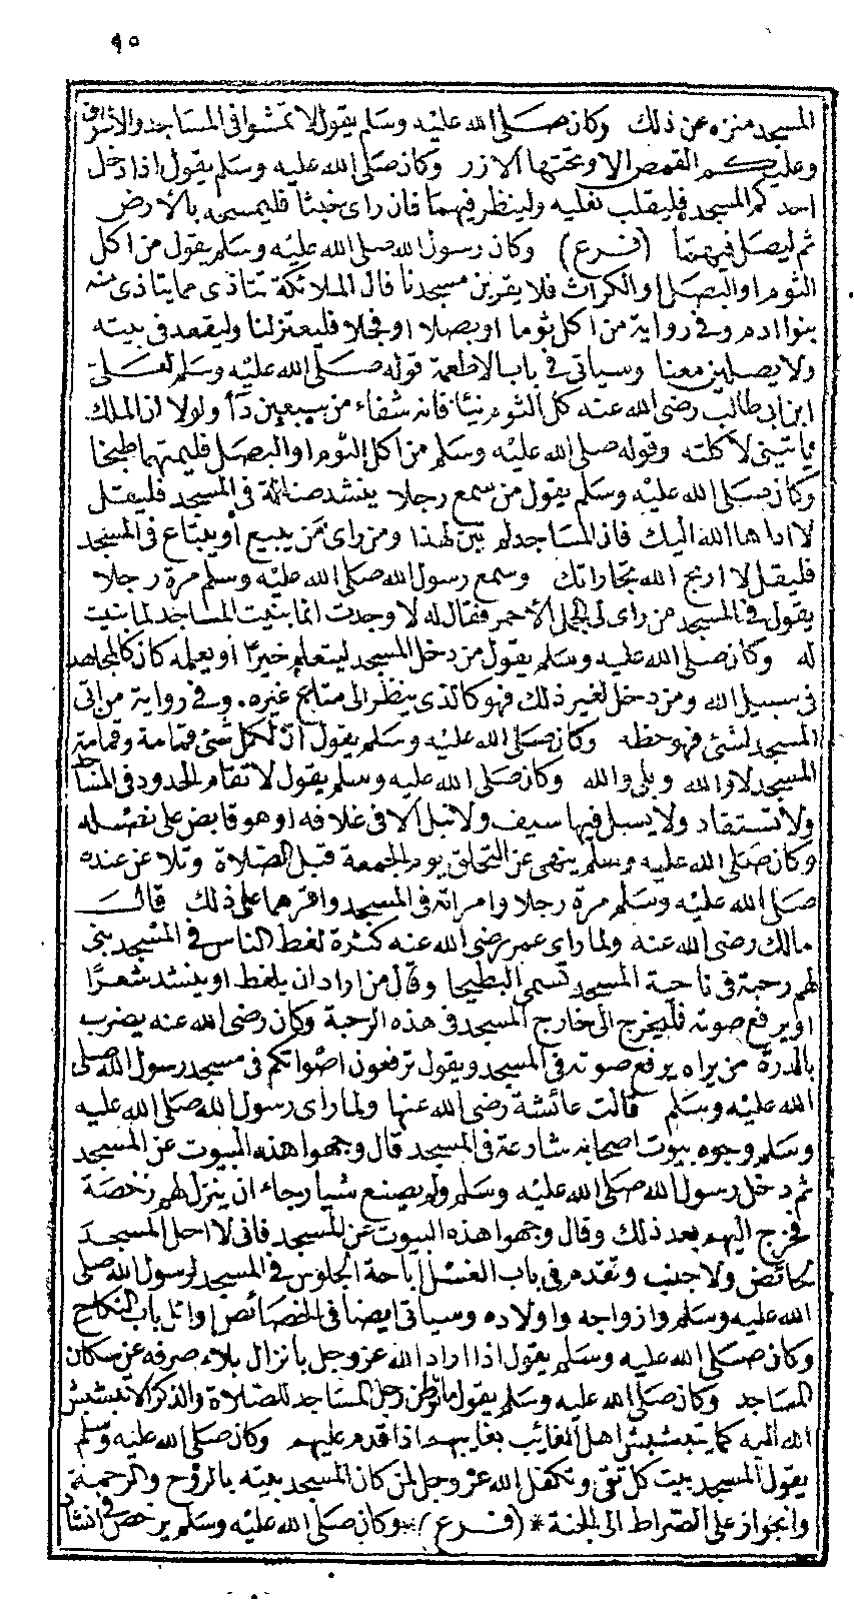 ٩٥
المسجد منزه عن ذلك وكان صلى الله عليه وسلم يقول لا تمشوا فى المساجد والاسواق
وعليكم القمص الا وتحتها الازر وكان صلى الله عليه وسلم يقول اذا دخل
احدكم المسجد فليقلب نعليه ولينظر فيهما فان راى خبثا فليمسحه بالارض
ثم ليصل فيهما (فرع) وكان رسول الله صلى الله عليه وسلم يقول من اكل
الثوم او البصل او الكراث فلا يقربن مسجدنا فان الملائكة تتاذى مما يتاذى منه
بنوا ادم وفى رواية من اكل ثوما او بصلا او فجلا فليعتزلنا وليقعد فى بيته
ولا يصلين معنا وسياتى فى باب الاطعمة قوله صلى الله عليه وسلم لعلى
ابن ابى طالب رضى الله عنه كل الثوم نيئا فانه شفاء من سبعين دأ ولولا ان الملك
ياتينى لاكلته وقوله صلى الله عليه وسلم من اكل الثوم او البصل فليمتهما طبخا
وكان صلى الله عليه وسلم يقول من سمع رجلا ينشد ضالة فى المسجد فليقل
لا اداها الله اليك فان المساجد لم تبن لهذا ومن راى من يبيع أو يبتاع فى المسجد
فليقل لا اربح الله تجارتك وسمع رسول الله صلى الله عليه وسلم مرة رجلا
يقول فى المسجد من راى لى الجمل الأحمر فقال له لا وجدت انما بنيت المساجد لما بنيت
له وكان صلى الله عليه وسلم يقول من دخل المسجد ليتعلم خيرًا أو يعلمه كان كالمجاهد
فى سبيل الله ومن دخل لغير ذلك فهو كالذى ينظر الى متاع غيره، وفى رواية من اتى
المسجد لشئ فهو حظه وكان صلى الله عليه وسلم يقول ان لكل شئ قمامة وقمامة
المسجد لا والله وبلى والله وكان صلى الله عليه وسلم يقول لا تقام الحدود فى المساجد
ولا تستقاد ولا يسل فيها سيف ولا نبل الا فى غلافه او هو قابض على نصله
وكان صلى الله عليه وسلم ينهى عن التحلق يوم الجمعة قبل الصلاة وتلاعن عنده
صلى الله عليه وسلم مرة رجلا وامراته فى المسجد واقرهما على ذلك قال
مالك رضى الله عنه ولما راى عمر رضى الله عنه كثرة لغط الناس فى المسجد بنى
لهم رحبة فى ناحية المسجد تسمى البطيحا وقال من اراد ان يلغط او ينشد شعرًا
او يرفع صوته فليخرج الى خارج المسجد فى هذه الرحبة وكان رضى الله عنه يضرب
بالدرة من يراه يرفع صوته فى المسجد ويقول ترفعون اصواتكم فى مسجد رسول الله صلى
الله عليه وسلم قالت عائشة رضى الله عنها ولما راى رسول الله صلى الله عليه
وسلم وجوه بيوت اصحابه شارعة فى المسجد قال وجهوا هذه البيوت عن المسجد
ثم دخل رسول الله صلى الله عليه وسلم ولم يصنع شيا رجاء ان ينزل لهم رخصة
فخرج اليهم بعد ذلك وقال وجهوا هذه البيوت عن المسجد فانى لا احل المسجد
لحائض ولا جنب وتقدم فى باب الغسل اباحة الجلوس فى المسجد لرسول الله صلى
الله عليه وسلم وازواجه واولاده وسياتى ايضا فى الخصائص اوائل باب النكاح
وكان صلى الله عليه وسلم يقول اذا اراد الله عز وجل بانزال بلاء صرفه عن سكان
المساجد وكان صلى الله عليه وسلم يقول ما توطن رجل المساجد للصلاة والذكر الا تبشبش
الله اليه كما يتبشبش اهل الغائب بغايبهم اذا قدم عليهم وكان صلى الله عليه وسلم
يقول المسجد بيت كل تقى وتكفل الله عز وجل لمن كان المسجد بيته بالروح والرحمة
والجواز على الصراط الى الجنة * (فرع) وكان صلى الله عليه وسلم يرخص فى انشاد